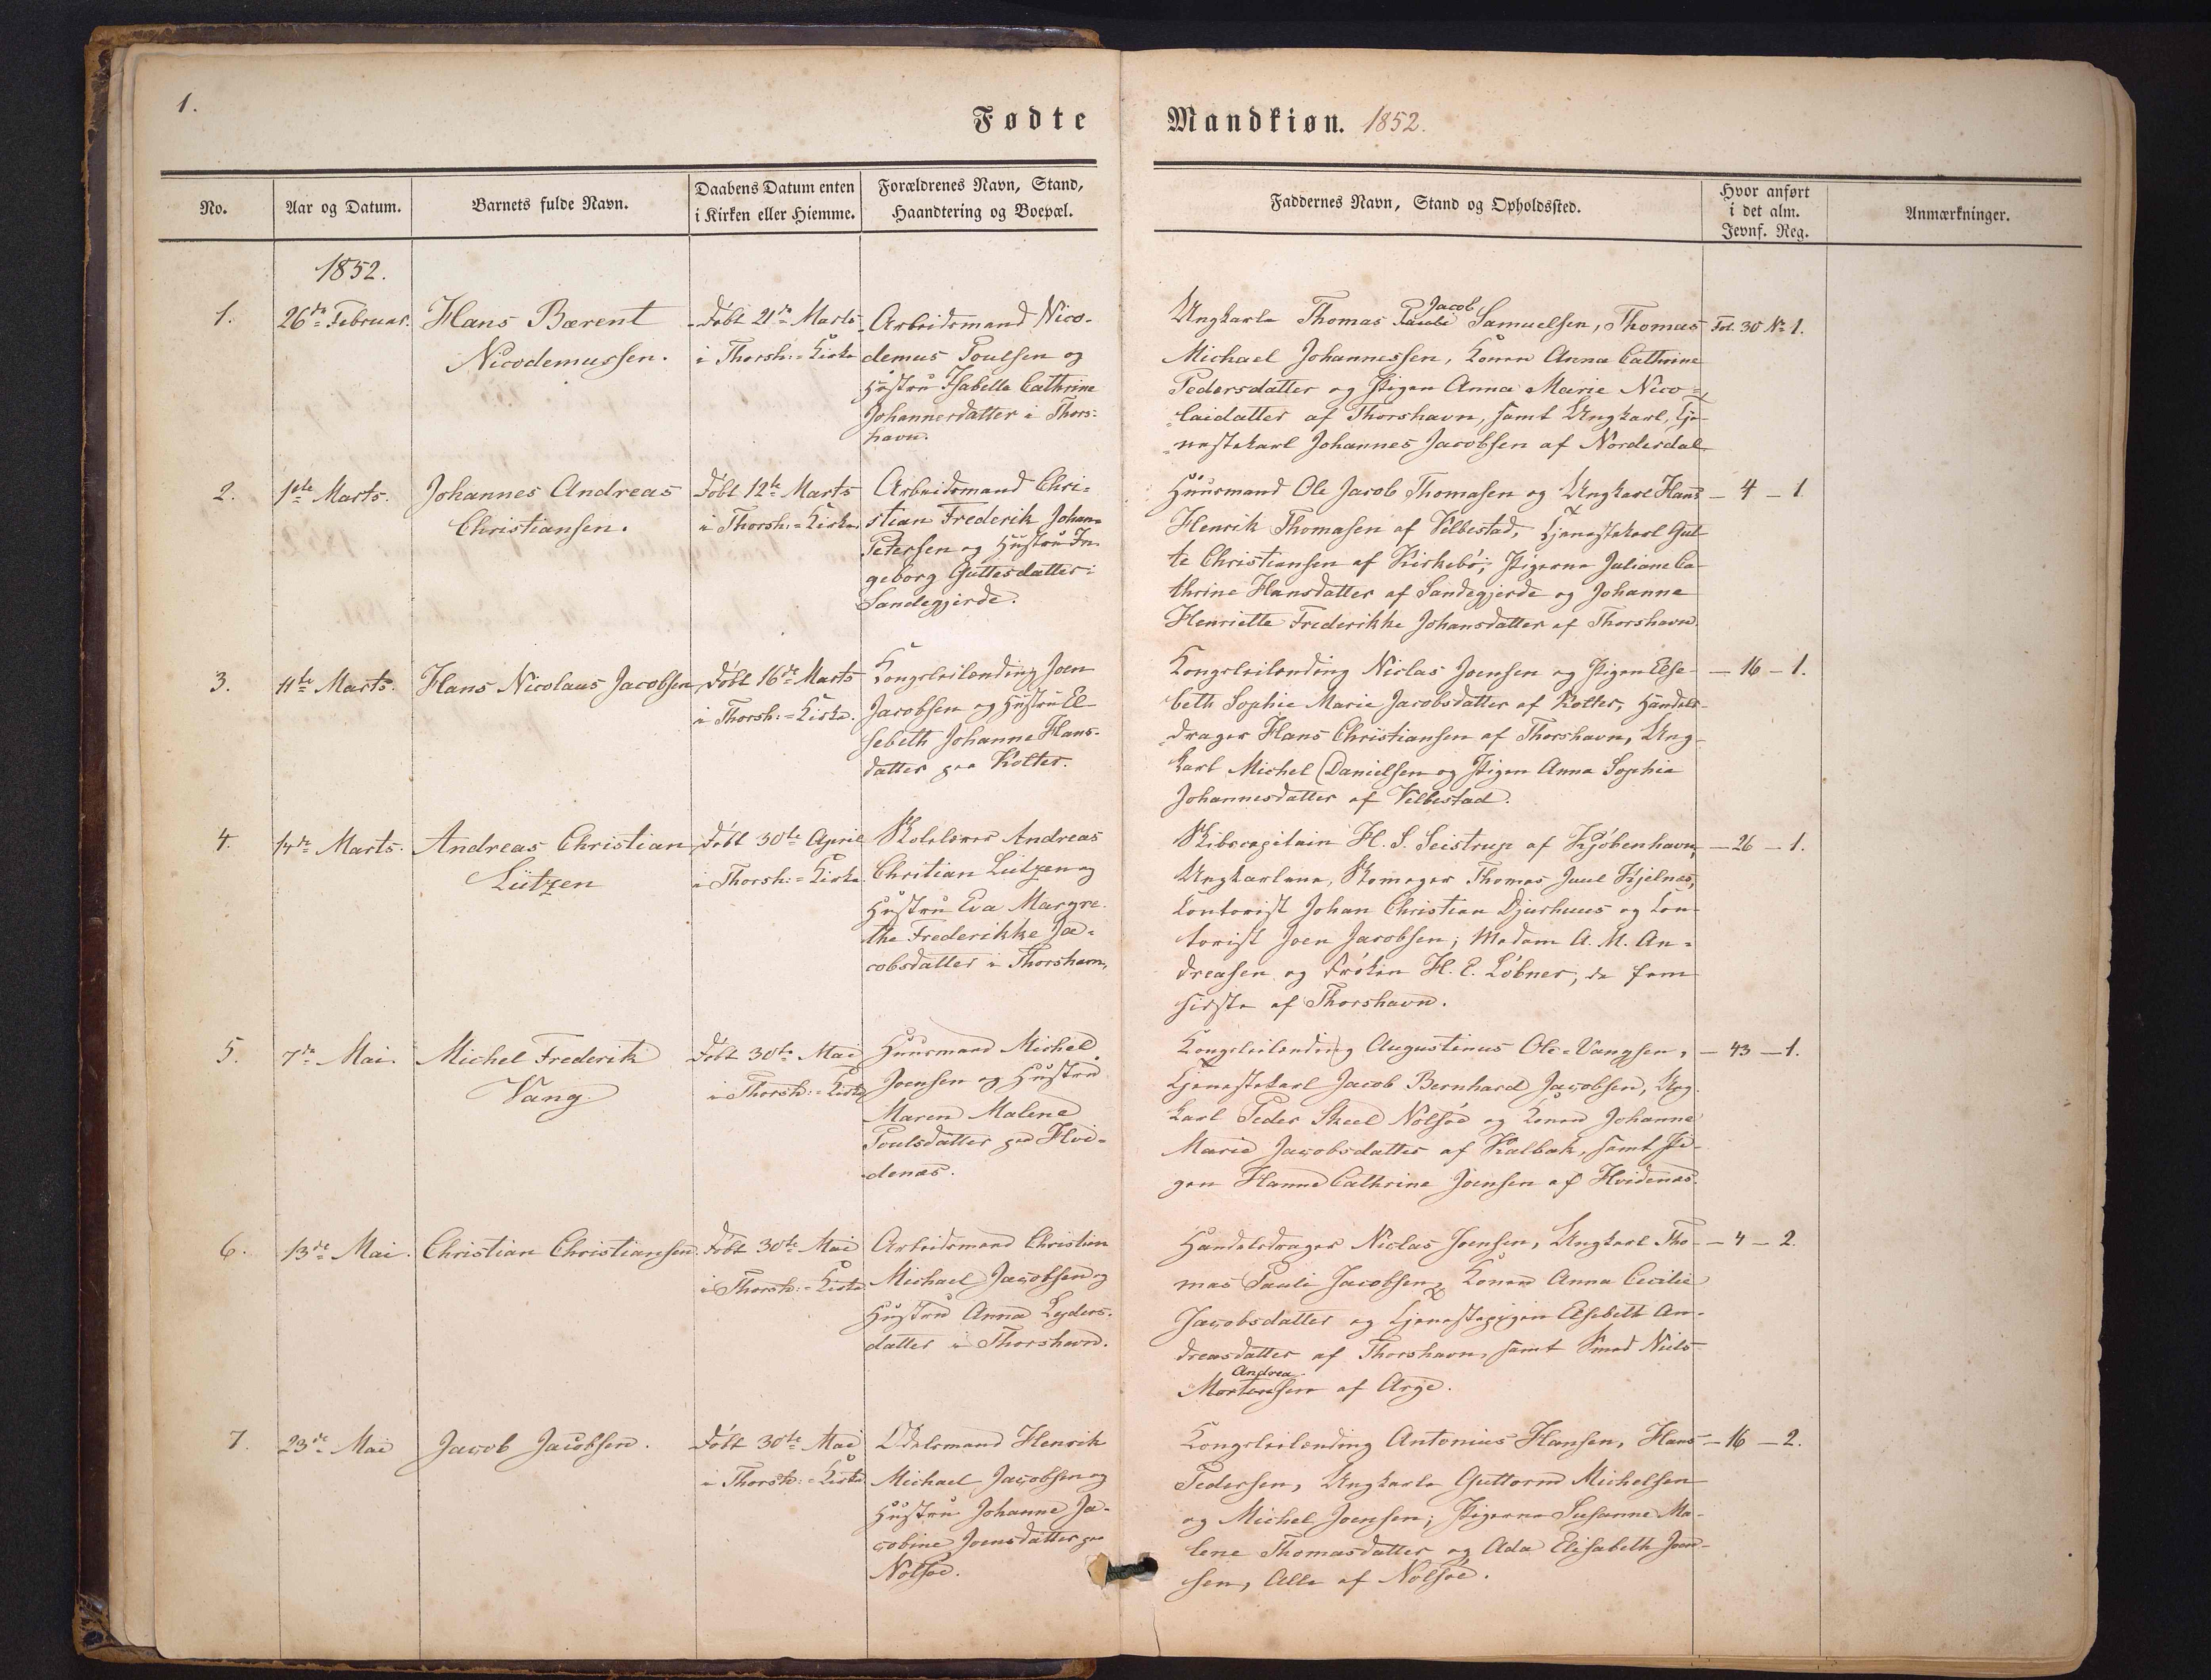 1.
Fødte Mandkiøn. 1852.
No.
Aar og Datum.
Barnets fulde Navn.
Daabens Datum enten
i Kirken eller Hiemme.
Forældrenes Navn, Stand,
Haandtering og Boepæl.
Faddernes Navn, Stand og Opholdssted.
Hvor anført
i det alm.
Jevnf. Reg.
Anmærkninger.
1852.
1.
26de Februar.
Hans Bærent
Nicodemussen.
Døbt 21de Marts
i Thorsh:=Kirke
Arbeidsmand Nico-
demus Poulsen og
Hustru Isabella Cathrine
Johannesdatter i Thors:
havn.
Ungkarle Thomas Jacob Samuelsen, Thomas
Michael Johannessen, Konen Anna Cathrine
Pedersdatter og Pigen Anna Marie Nico=
laidatter af Thorshavn, samt Ungkarl, Tje-
nestekarl Johannes Jacobsen af Norderdal
Fol. 30 No 1.
2.
1ste Marts.
Johannes Andreas
Christiansen.
Døbt 12te Marts
i Thorsh:=Kirke.
Arbeidsmand Chri=
stian Frederik Johan=
Petersen og Hustru In-
geborg Guttesdatter i
Sandegjerde.
Huusmand Ole Jacob Thomasen og Ungkarl Hans
Henrik Thomasen af Velbestad, Tjenestekarl Gut
te Christiansen af Kirkebö; Pigerne Juliane Ca-
thrine Hansdatter af Sandegjerde og Johanne
Henriette Frederikke Johansdatter af Thorshavn.
— 4 — 1.
3.
11te Marts.
Hans Nicolaus Jacobsen
Døbt 16de Marts
i Thorsh:=Kirke.
Kongsleilending Joen
Jacobsen og Hustru El-
sebeth Johanne Hans-
datter paa Kolter.
Kongsleilending Niclas Joensen og Pigen Else-
beth Sophie Marie Jacobsdatter af Kolter, Handels-
drager Hans Christiansen af Thorshavn, Ung-
karl Michel Danielsen og Pigen Anna Sophia
Johannesdatter af Velbestad.
— 16 — 1.
4.
14de Marts.
Andreas Christian
Lützen
Døbt 30te April
i Thorsh:=Kirke.
Skolelærer Andreas
Chritian Lützen og
Hustru Eva Margre-
the Frederikke Ja=
cobsdatter i Thorshavn.
Skibscapitain H. S. Seistrup af Kjöbenhavn,
Ungkarlene, Skomager Thomas Juul Kjelnæs,
Contorist Johan Christian Djurhuus og Con-
torist Joen Jacobsen; Madam A. M. An=
dreasen og Frøken H. E. Löbner, de fem
sidste af Thorshavn.
— 26 — 1.
5.
7de Mai.
Michel Frederik
Vang.
Døbt 30te Mai
i Thorsh:=Kirke
Huusmand Michel
Joensen og Hustru
Maren Malene
Poulsdatter paa Hvi=
denæs.
Kongsleilending Augustinus Ole=Vangsen,
Tjenestekarl Jacob Bernhard Jacobsen, Ung-
karl Peder Skeel Nolsöe og Konen Johanne
Marie Jacobsdatter af Kalbak, samt Pi-
gen Hanne Cathrine Joensen af Hvidenæs.
— 43 — 1.
6.
13de Mai.
Christian Christiansen.
Døbt 30te Mai
i Thorsh:=Kirke.
Arbeidsmand Christian
Michael Jacobsen og
Hustru Anna Lyders-
datter i Thorshavn.
Handelsdrager Niclas Joensen, Ungkarl Tho-
mas Pauli Jacobsen, Konen Anna Cecilie
Jacobsdatter og Tjenestepigen Elsebeth An-
dreasdatter af Thorshavn, samt Smed Niels
Andrea
Mortensen af Arge.
— 4 — 2.
7.
23de Mai
Jacob Jacobsen.
Døbt 30te Mai
i Thorsh:=Kirke
Odelsmand Henrik
Michael Jacobsen og
Hustru Johanne Ja-
cobine Joensdatter paa
Nolsöe.
Kongsleilending Antonius Hansen, Hans
Pedersen, Ungkarle Guttorm Michelsen
og Michel Joensen; Pigerne Susanne Ma-
lene Thomasdatter og Ada Elisabeth Joen-
sen, Alle af Nolsöe.
— 16 — 2.